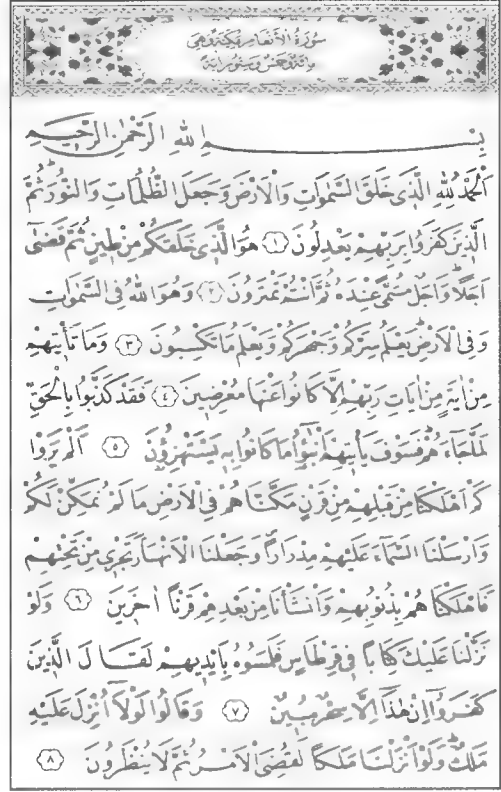 سُورَةُ الْاَنْعَامِ مَكِّيَّةٌ وَهِيَ
مِائَةٌ وَخَمْسٌ وَسِتُّونَ اٰيَةً
بِسْمِ اللّٰهِ الرَّحْمٰنِ الرَّحِيمِ
اَلْحَمْدُ لِلّٰهِ الَّذِي خَلَقَ السَّمٰوَاتِ وَالْاَرْضَ وَجَعَلَ الظُّلُمَاتِ وَالنُّورَ ثُمَّ
الَّذِينَ كَفَرُوا بِرَبِّهِمْ يَعْدِلُونَ ﴿١﴾ هُوَ الَّذِي خَلَقَكُمْ مِنْ طِينٍ ثُمَّ قَضٰى
اَجَلاً وَاَجَلٌ مُسَمًّى عِنْدَهُ ثُمَّ اَنْتُمْ تَمْتَرُونَ ﴿٢﴾ وَهُوَ اللّٰهُ فِي السَّمٰوَاتِ
وَفِي الْاَرْضِ يَعْلَمُ سِرَّكُمْ وَجَهْرَكُمْ وَيَعْلَمُ مَا تَكْسِبُونَ ﴿٣﴾ وَمَا تَأْتِيهِمْ
مِنْ اٰيَةٍ مِنْ اٰيَاتِ رَبِّهِمْ اِلَّا كَانُوا عَنْهَا مُعْرِضِينَ ﴿٤﴾ فَقَدْ كَذَّبُوا بِالْحَقِّ
لَمَّا جَاءَهُمْ فَسَوْفَ يَأْتِيهِمْ اَنْبٰٓؤُا مَا كَانُوا بِهِ يَسْتَهْزِؤُنَ ﴿٥﴾ اَلَمْ يَرَوْا
كَمْ اَهْلَكْنَا مِنْ قَبْلِهِمْ مِنْ قَرْنٍ مَكَّنَّاهُمْ فِي الْاَرْضِ مَا لَمْ نُمَكِّنْ لَكُمْ
وَاَرْسَلْنَا السَّمَاءَ عَلَيْهِمْ مِدْرَاراً وَجَعَلْنَا الْاَنْهَارَ تَجْرِي مِنْ تَحْتِهِمْ
فَاَهْلَكْنَاهُمْ بِذُنُوبِهِمْ وَاَنْشَأْنَا مِنْ بَعْدِهِمْ قَرْناً اٰخَرِينَ ﴿٦﴾ وَلَوْ
نَزَّلْنَا عَلَيْكَ كِتَاباً فِي قِرْطَاسٍ فَلَمَسُوهُ بِاَيْدِيهِمْ لَقَالَ الَّذِينَ
كَفَرُوا اِنْ هٰذَا اِلَّا سِحْرٌ مُبِينٌ ﴿٧﴾ وَقَالُوا لَوْلَا اُنْزِلَ عَلَيْهِ
مَلَكٌ وَلَوْ اَنْزَلْنَا مَلَكاً لَقُضِيَ الْاَمْرُ ثُمَّ لَا يُنْظَرُونَ ﴿٨﴾